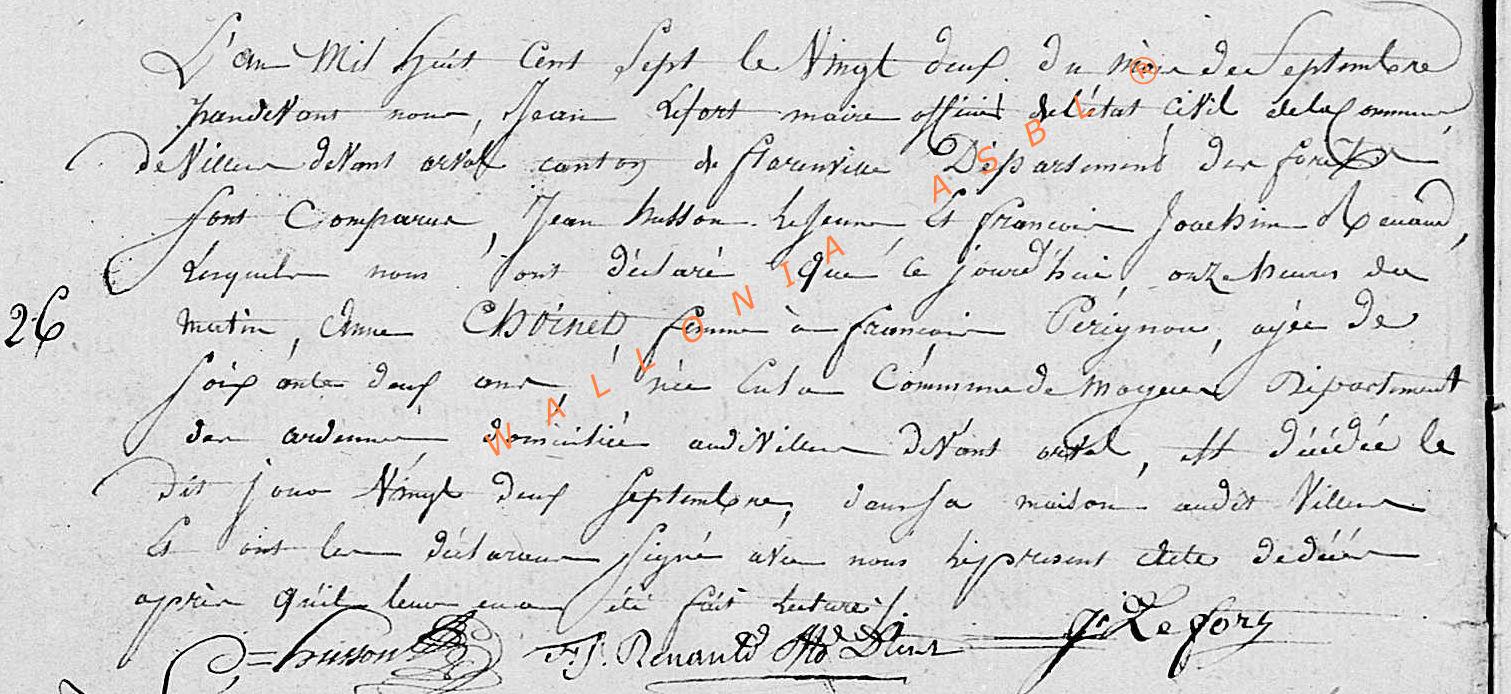 L'an Mil huit Cent Sept le Vingt deux du mois de Septembre
pardevant nous, Jean Lefort maire officier de l'état Civil de la Commune
de Villers devant orval canton de florenville Département des forets
sont Comparus, Jean husson Le Jeune, Et françois Joachim Renauld,
Lesquels nous ont déclaré que ce jourd'hui onze heures du
26 matin, Anne CHoinet femme à françois Pérignon, agée de
soixante deux ans, née En la Commune de Département
des ardennes domiciliée audit Villers devant orval, est décédée le
dit jour Vingt deux septembre, dans sa maison audit Villers
Et ont les déclarans signé avec nous le present Acte de décès
après qu'il leur en a été fait Lecture
husson F. J. Renauld J. Lefort
WALLONIA ASBL ®